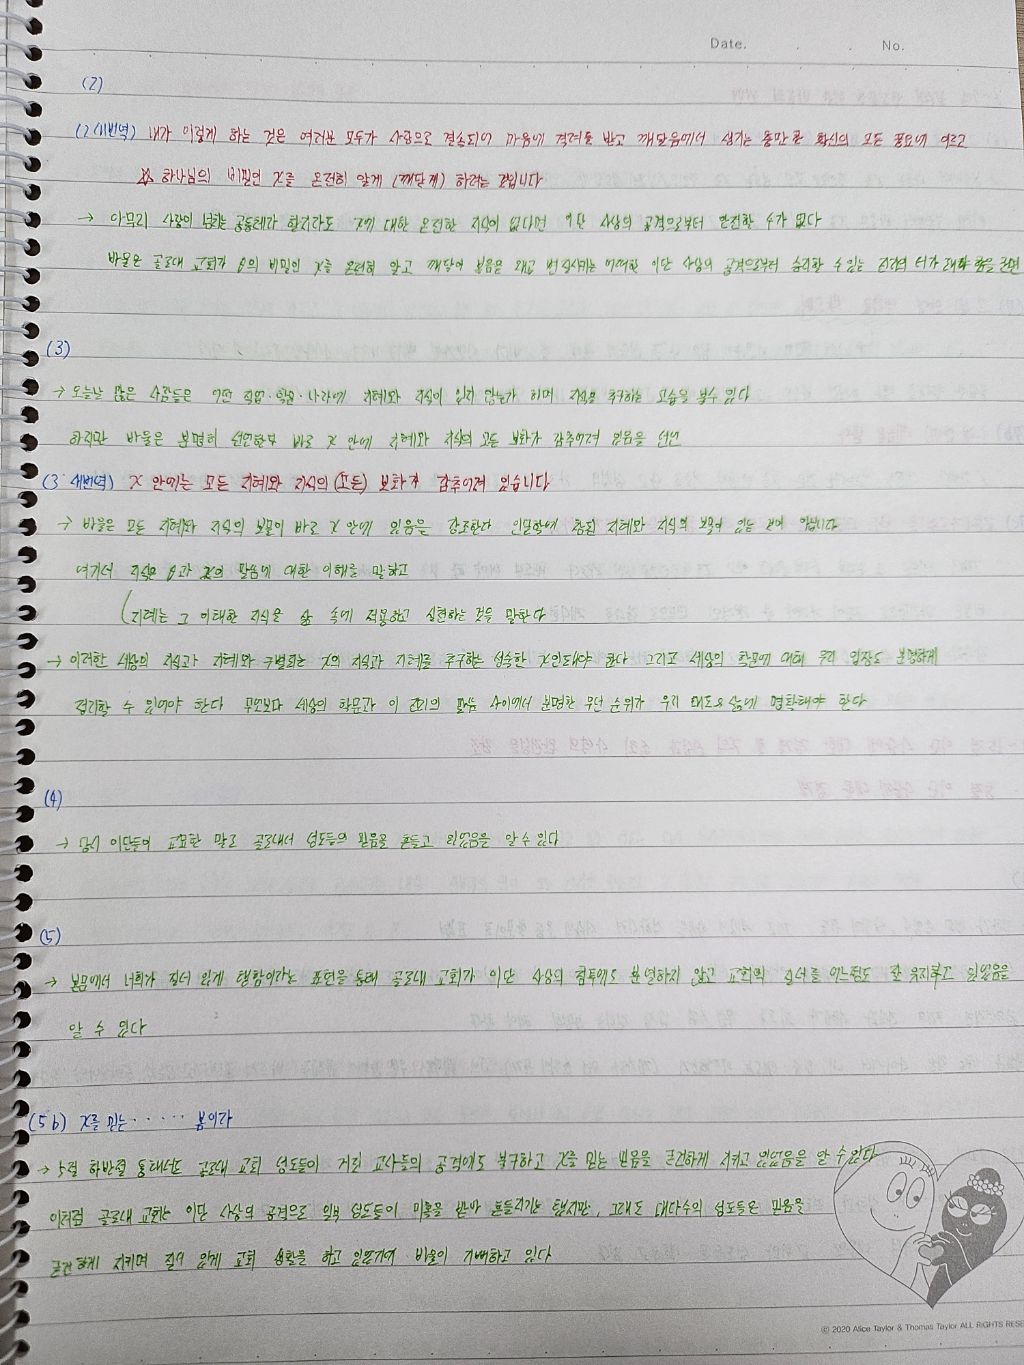 Date. . . No.
(2)
(2 새번역) 내가 이렇게 하는 것은 여러분 모두가 사랑으로 결속되어 마음에 격려를 받고 깨달음에서 생기는 충만한 확신의 모든 풍요에 이르고
☆ 하나님의 비밀인 X를 온전히 알게 (깨닫게) 하려는 것입니다
→ 아무리 사랑이 넘치는 공동체라 할지라도 X에 대한 온전한 지식이 없다면 이단 사상의 공격으로부터 안전할 수가 없다
바울은 골로새 교회가 θ의 비밀인 X를 온전히 알고 깨달아 복음을 왜곡 변질시키는 어떠한 이단 사상의 공격으로부터 승리할 수 있는 진리의 터가
(3)
→ 오늘날 많은 사람들은 어떤 직업·학문·나라에 지혜와 지식이 있지 않는가 하며 지식을 추구하는 모습을 볼수 있다
하지만 바울은 분명히 선언한다 바로 X 안에 지혜와 지식의 모든 보화가 감추어져 있음을 선언
(3 새번역) X 안에는 모든 지혜와 지식의 (모든) 보화가 감추어져 있습니다
→ 바울은 모든 지혜와 지식의 보물이 바로 X 안에 있음을 강조한다 이단학에 참된 지혜와 지식의 보물이 있는 것이 아닙니다
여기서 지식은 θ과 X의 말씀에 대한 이해를 말하고
(지혜는 그 이해한 지식을 삶 속에 적용하고 실현하는 것을 말한다
→ 이러한 세상의 지식과 지혜와 구별되는 X의 지식과 지혜를 추구하는 성숙한 X인되야 한다 그리고 세상의 학문에 대해 우리 입장도 분명하게
정리할 수 있어야 한다 무엇보다 세상의 학문과 이 진리의 말씀 사이에서 분명한 우선 순위가 우리 태도와 삶에 명확해야 한다
(4)
→ 당시 이단들이 교묘한 말로 골로새서 성도들의 믿음을 흔들고 있었음을 알 수 있다
(5)
→ 본문에서 너희가 질서 있게 행함이라는 표현을 통해 골로새 교회가 이단 사상의 침투에도 분열하지 않고 교회의 질서를 어느정도 잘 유지하고 있었음을
알 수 있다
(5b) X를 믿는 · · · · · 봄이라
→ 5절 하반절 통해서도 골로새 교회 성도들이 거짓 교사들의 공격에도 불구하고 X를 믿는 믿음을 굳건하게 지키고 있었음을 알 수 있다
이처럼 골로새 교회는 이단 사상의 공격으로 일부 성도들이 미혹을 받아 흔들리기는 했지만, 그래도 대다수의 성도들은 믿음을
굳건하게 지키며 질서 있게 교회 생활을 하고 있었기에 바울이 기뻐하고 있다
© 2020 Alice Taylor & Thomas Taylor ALL RIGHTS RESE